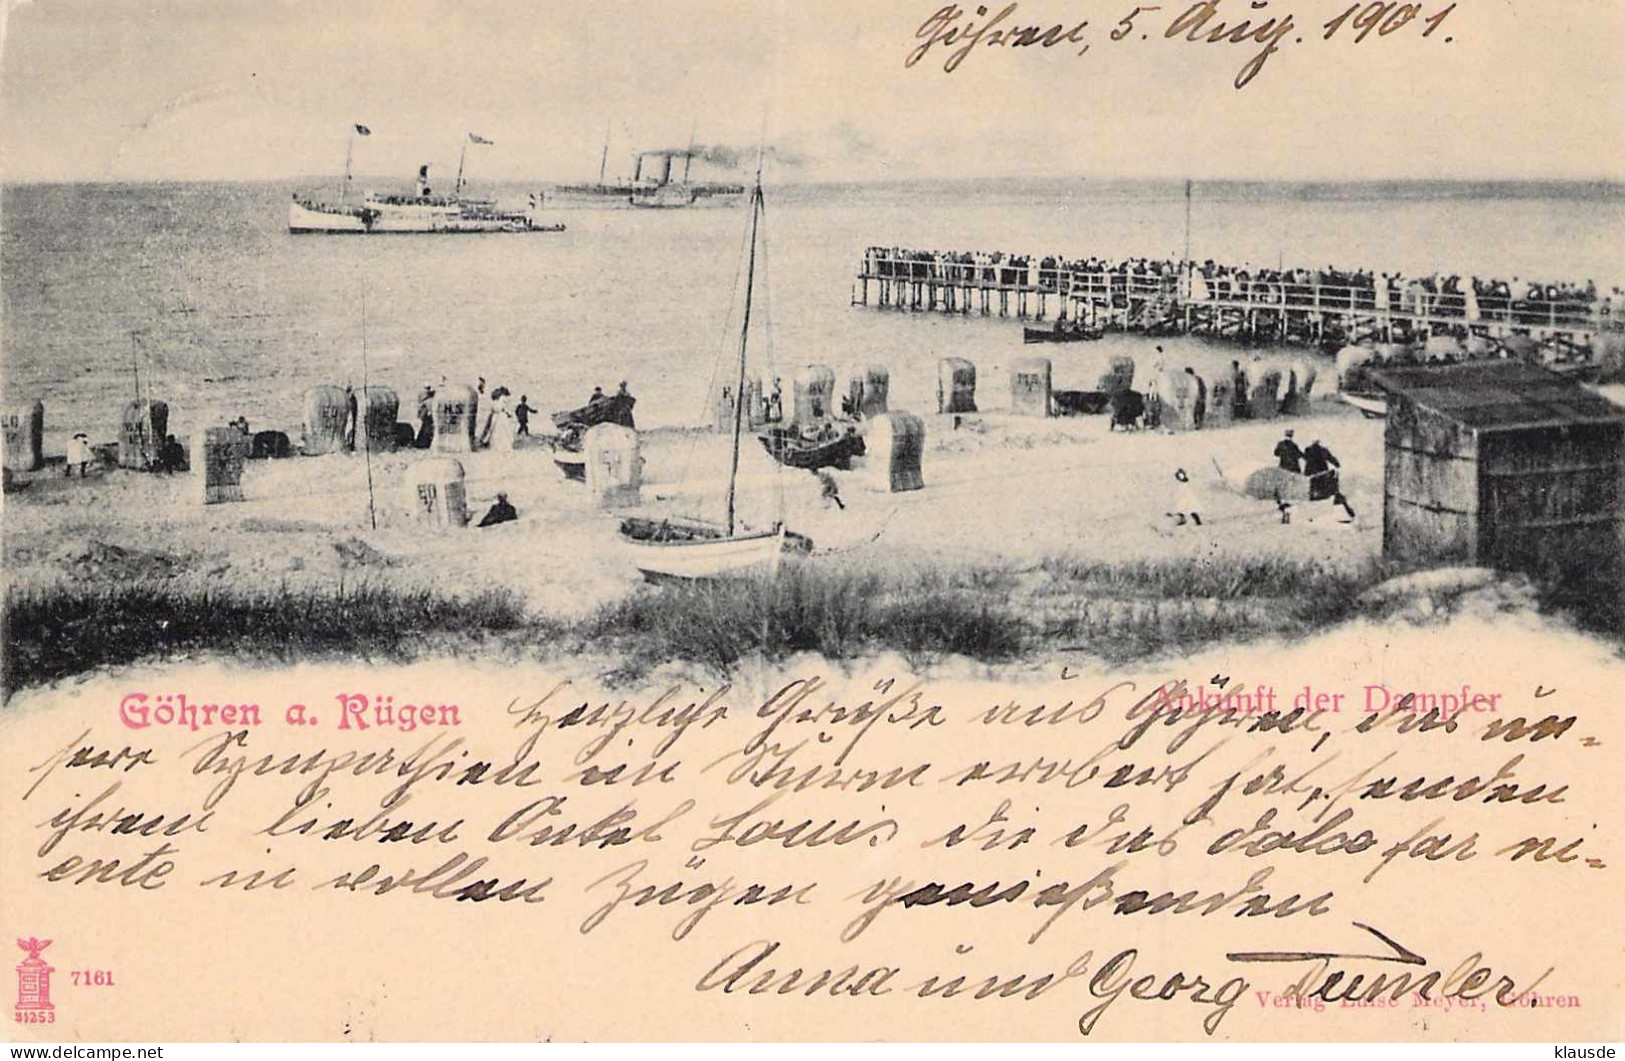 Göhren, 5. Aug. 1901.
Göhren a. Rügen
Ankunft der Dampfer
Herzliche Grüße aus Göhren, das un-
sere Sympathien im Sturm erobert hat, senden
ihrem lieben Onkel Louis die das dolce far ni-
ente in vollen Zügen genießenden
Anna und Georg
7161
31253
Verlag Luise Meyer, Göhren
klausde